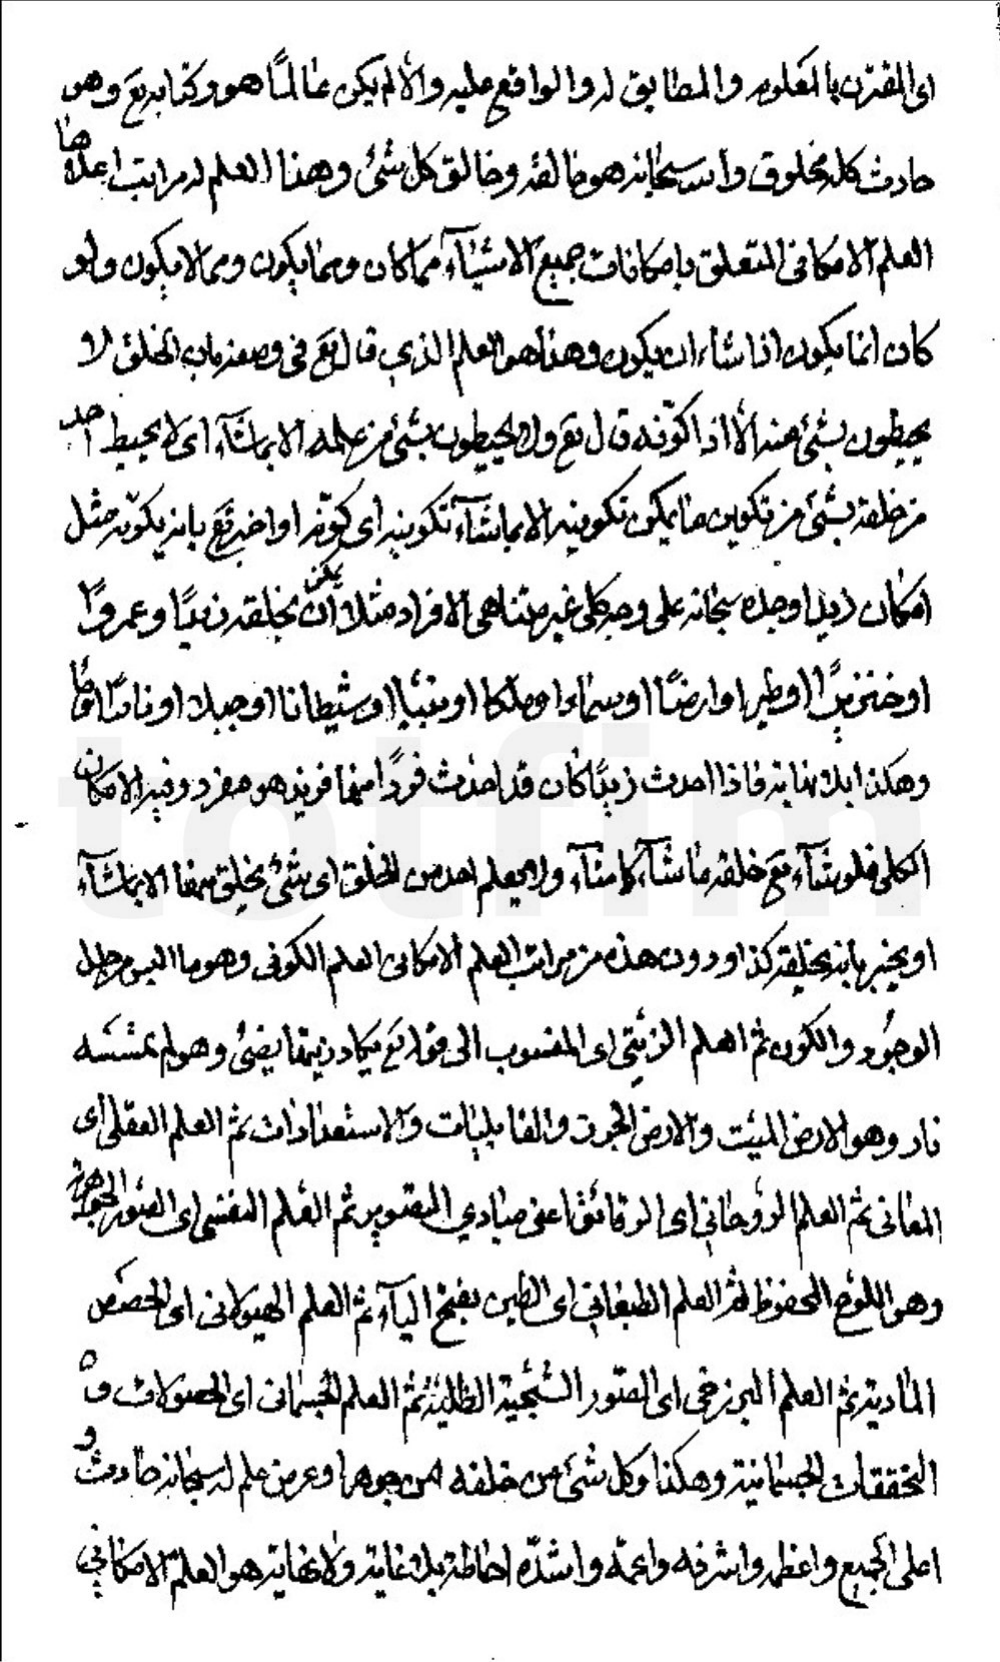 اى المقترن بالمعلوم والمطابق له والواقع عليه والا لم يكن عالمًا هو وكتابه تع وهو
حادث كله مخلوق والله سبحانه هو خالقه وخالق كل شئ وهذا العلم له مراتب اعلاها
العلم الامكانى المتعلق بامكانات جميع الاشيآء مما كان ومما يكون ومما لا يكون ولو
كان انما يكون اذا شاء ان يكون وهذا هو العلم الذى قال تع فى وصفه بان الخلق لا
يحيطون بشئ منه الا اذا كوّنه قال تع ولا يحيطون بشئ من علمه الا بما شآء اى لا يحيط احد
من خلقه بشئ من تكوين ما يمكن تكوينه الا بما شآء تكوينه اى كوّنه او اخبر تع بانه يكوّنه مثل
امكان زيد اوجده سبحانه على وجه كلى غير متناهى الافراد مثلا يمكن ان يخلقه زيدًا وعمروًا
او خنزيرًا او طيرا او ارضًا او سماءا او ملكا او نبيّا او شيطانا او جبلا او نباتًا
وهكذا بلا نهاية فاذا احدث زيدًا كان قد احدث فردًا منها فزيد هو مفرد وفيه الامكان
الكلى فلو شآء تع خلقه ما شآء كما شآء ولا يعلم احد من الخلق اى شئ يخلق منها الا بما شآء
او يخبر بانه يخلقه كذا ودون هذه من مراتب العلم الامكانى العلم الكونى وهو ما البس من حلل
الوجود والكون ثم العلم الزيتى اى المنسوب الى قوله تع يكاد زيتها يضئ ولو لم تمسسه
نار وهو الارض الميت والارض الجرز والقابليات والاستعدادات ثم العلم العقلى اى
المعانى ثم العلم الروحانى اى الرقائق اعنى مبادى التصوير ثم العلم النفسى اى الصور الجوهرية
وهو اللوح المحفوظ ثم العلم الطبعانى اى الطين بفتح اليآء ثم العلم الهيولانى اى الحصص
المادية ثم العلم البرزخى اى الصور الشبحية الظلية ثم العلم الجسمانى اى الحصولات و
التحققات الجسمانية وهكذا وكل شئ من خلقه من جوهر او عرض علم له سبحانه حادث و
اعلى الجميع واعظمه واشرفه واعمه واشدّه احاطة بلا غاية ولا نهاية هو العلم الامكانى
totfim